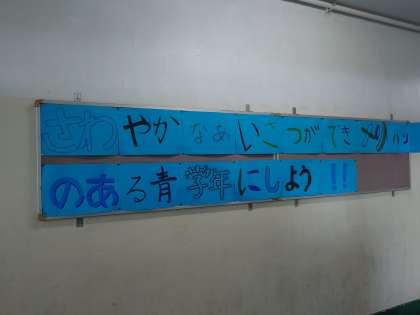 さわやかなあいさつができメリハリ
のある青学年にしよう!!